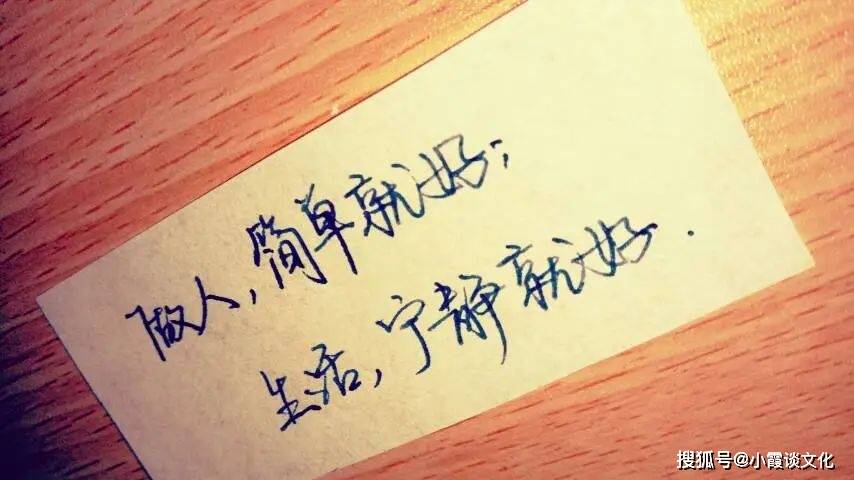 做人，简单就好；
生活，宁静就好.
搜狐号@小霞谈文化